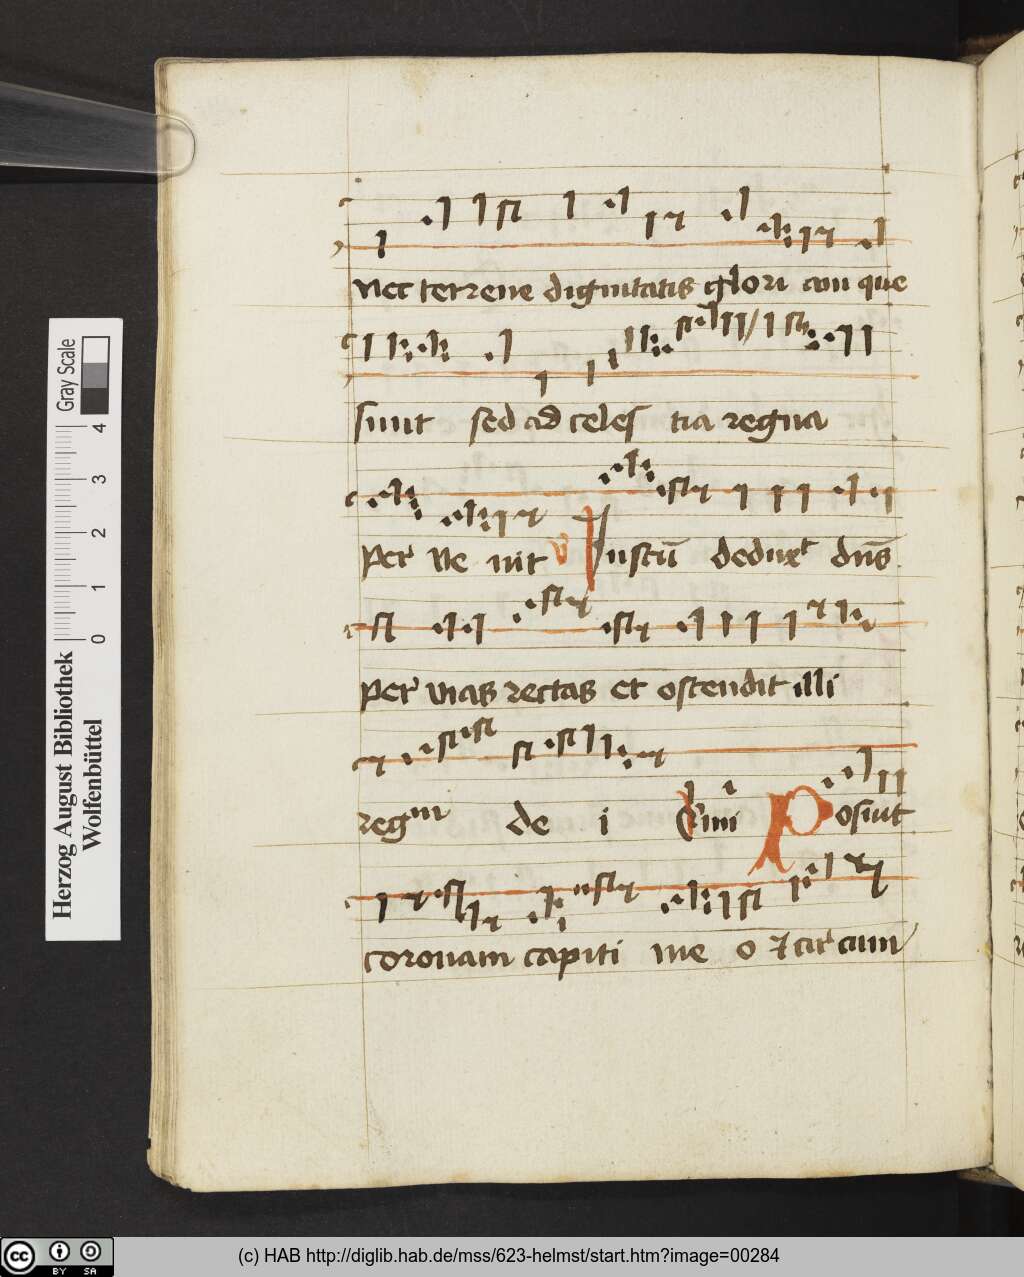 nec terrene dignitatis glori am que
sunt sed ad celes tia regna
per ve nit V Iustū deduxt dn̄s
per vias rectas et ostendit illi
regm de i Posuit
coronam capiti me o ⁊ cir cum
Herzog August Bibliothek
Wolfenbüttel
0 1 2 3 4
Gray Scale
cc BY SA
(c) HAB http://diglib.hab.de/mss/623-helmst/start.htm?image=00284